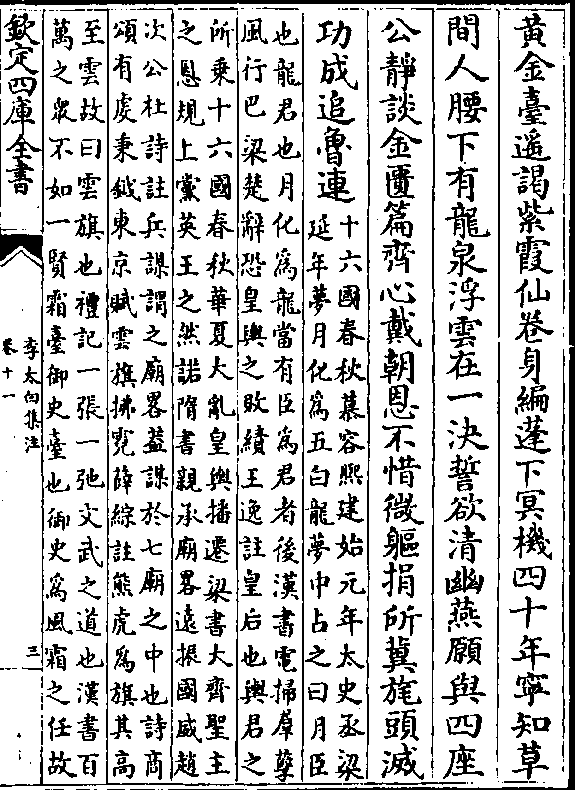 黃金臺遥謁紫霞仙卷身編蓬下冥機四十年寜知草
間人腰下有龍泉浮雲在一決誓欲清幽燕願與四座
公靜談金匱篇齊心戴朝恩不惜微軀捐所冀旄頭滅
功成追魯連
十六國春秋慕容熙建始元年太史丞梁
延年夢月化為五白龍夢中占之曰月臣
也龍君也月化為龍當有臣為君者後漢書電掃羣孽
風行巴梁楚辭恐皇輿之敗績王逸註皇后也輿君之
所乘十六國春秋華夏大亂皇輿播遷梁書大齊聖主
之恩規上黨英王之然諾隋書親承廟畧遠振國威趙
次公杜詩註兵謀謂之廟畧葢謀於七廟之中也詩商
頌有虔秉鉞東京賦雲旗拂霓薛綜註熊虎為旗其高
至雲故曰雲旗也禮記一張一弛文武之道也漢書百
萬之衆不如一賢霜臺御史臺也御史為風霜之任故
欽定四庫全書
李太白集注
卷十一
三